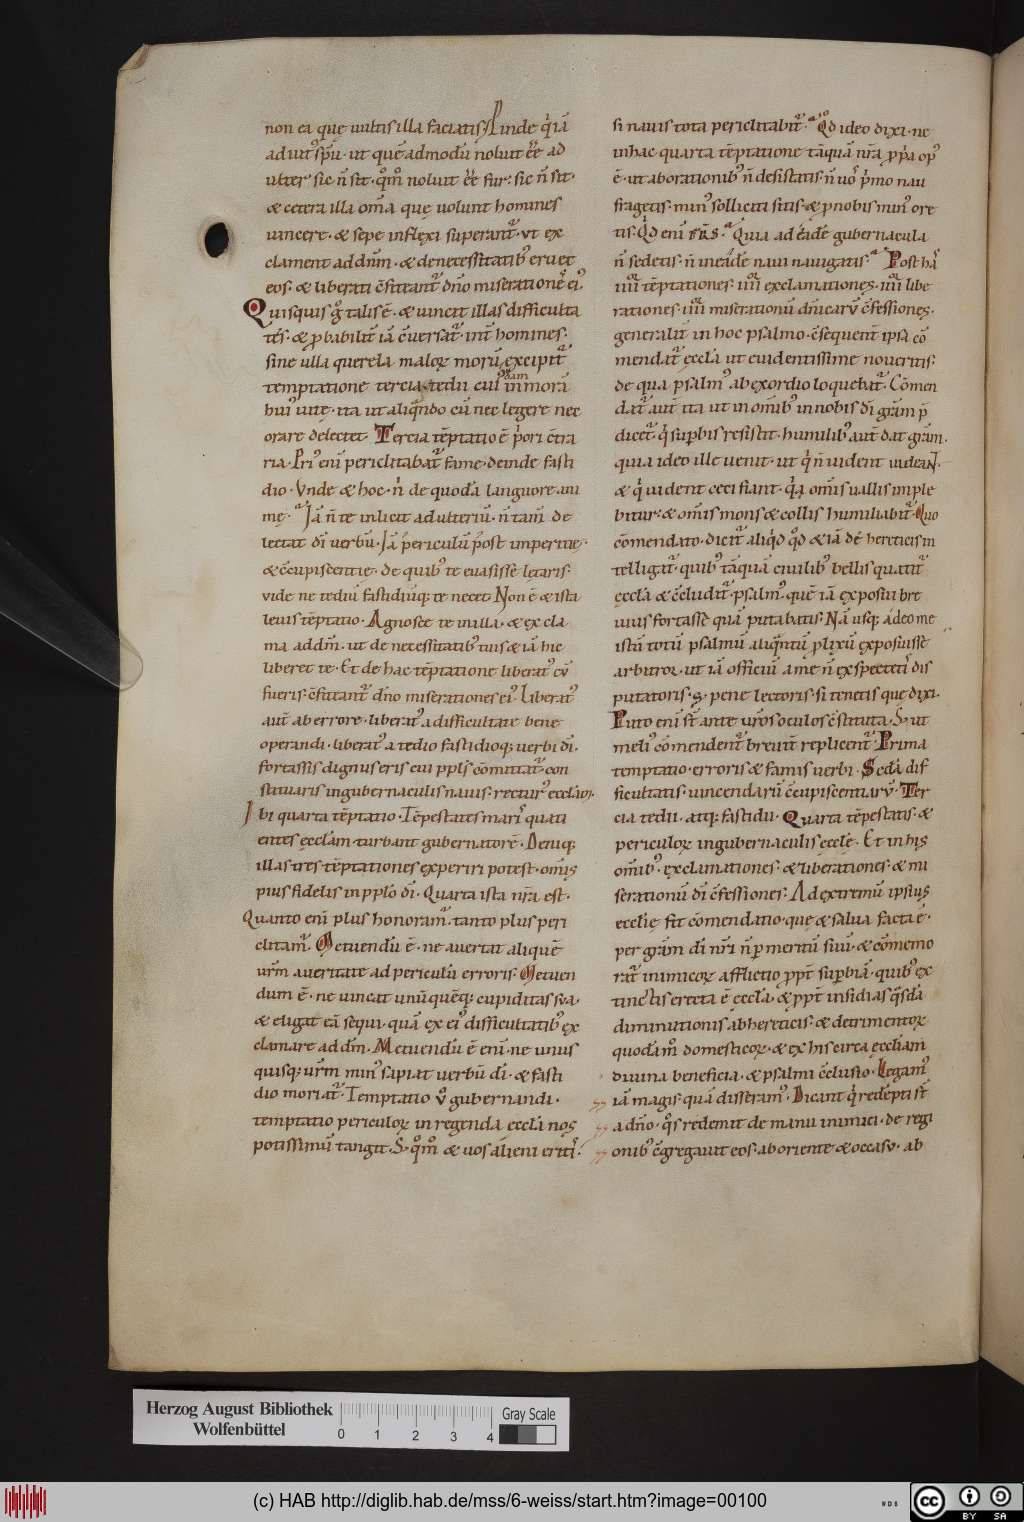 non ea quę uultis illa faciatis. Proinde q̇ iā
aduuꝰ sp̄u. ut quē admodū noluit eē ad
ulter. sic n̄ sit. qm̄ noluit eē fur. sic n̄ sit.
& cetera illa om̄a quę uolunt homines
uincere. & sepe inflexi superant᷑. vt ex
clament ad dn̄m. & de necessitatibꝰ eruet
eos. & liberati c̄fiteant᷑ dn̄o miserationeſ eiꝰ.
Quisquis g̊ talis ē. & uincit illas difficulta
tes. & ꝓbabilit̄ iā c̄uersat᷑ int̄ homines.
sine ulla querela maloꝝ morū. excipit᷑
temptatione tercia. tedii cuiꝰdam in morā
huiꝰ uitę. ita ut aliqͣndo eū nec legere nec
orare delectet. Tercia tēptatio ē p̓ori c̄tra
ria. Priꝰ enī periclitabat᷑ fame. deinde fasti
dio. Vnde & hoc. n̓ de quodā languore ani
mę. Jā n̄ te inlicit adulteriū. n̄ tam̄ de
lectat di̅ verbū. Jā periculū post imperitię.
& c̄cupiscentię. de quibꝰ te euasisse lętaris.
vide ne tediū fastidiūq; te necet. Non ē & ista
leuis tēptatio. Agnosce te in illa. & excla
ma ad dn̄m. ut de necessitatibꝰ tuis & iā hic
liberet te. Et de hac tēptatione liberatꝰ cū
fueris. c̄fiteant᷑ dn̄o miserationes eiꝰ. Liberatꝰ
aut̄ ab errore. liberatꝰ a difficultate bene
operandi. liberatꝰ a tedio fastidioq; uerbi di̅.
fortassis dignus eris cui ppl̄s c̄mittat᷑. con
stituaris in gubernaculis nauis. recturꝰ ecclā.
Jbi quarta tēptatio. Tēpestates mariſ quati
entes ecclam turbant gubernatorē. Deniq;
illas tres tēptationes experiri potest. omis
pius fidelis in pplo di̅. Quarta ista nr̄a est.
Quanto enī plus honoram᷑. tanto plus peri
clitam᷑. Metuendū ē. ne auertat aliquē
ur̄m a ueritate ad periculū erroris. Metuen
dum ē. ne uincat unū quēq; cupiditas sua.
& eligat eā sequi. quā ex eiꝰ difficultatibꝰ ex
clamare ad dm̄. Metuendū ē enī. ne unus
quisq; ur̄m minꝰ sapiat uerbū di̅. & fasti
dio moriat᷑. Temptatio v̊ gubernandi.
temptatio periculoꝝ in regenda eccl̄a nos
potissimū tangit. S; qm̄ & uos alieni eritiſ.
si nauis tota periclitabit᷑. Qd̄ ideo dixi. ne
in hac quarta tēptatione tāquā nr̄a ꝓp̓a opꝰ
ē. ut ab orationibꝰ n̄ desistatis. n̄ uos p̓mo nau
fragetis. minꝰ solliciti sitis. & ꝓ nobis minꝰ ore
tis. Qd̄ enī FR̄S. Quia ad eadē gubernacula
n̄ sedetis. n̄ in eadē naui nauigatis. Post hͣ
iiii᷑ tēptationes. iiii᷑ exclamationes. iiii᷑ libe
rationes. iiii᷑ miserationū dn̄icarū c̄fessiones.
generalit̄ in hoc psalmo. c̄sequent̄ ipsa cō
mendat᷑ eccl̄a ut euidentissime noueritis.
de qua psalmꝰ ab exordio loquebat᷑. Cōmen
dat᷑ aut̄ ita ut in om̄ibꝰ in nobis di̅ grām p̄
dicet᷑. q̓ supbis resistit. humilibꝰ aut̄ dat grām.
quia ideo ille uenit. ut q̓ n̄ uident uideāt.
& q̓ uident ceci fiant. qͣ omīs uallis imple
bitur. & omīs mons & collis humiliabit᷑. Quo
cōmendato. dicit᷑ aliqd̓ qd̊ & iā dē hereticis in
telligat᷑. quibꝰ tāquā ciuilibꝰ bellis quatit᷑
eccl̄a & c̄cludit᷑. psalmꝰ. quē iā exposui bre
uius fortasse quā putabatis. Nā usq; adeo me
istū totū psalmū aliqn̄tū plixū exposuisse
arbitror. ut iā officiū a me n̄ expectetis dis
putatoris. s; pene lectoris. si tenetis quę dixi.
Puto enī st̄ ante ur̄os oculos c̄stituta. S; ut
meliꝰ c̄mendent᷑ breuit̄ replicent᷑. Prima
temptatio. erroris & famis uerbi. Scd̄a dif
ficultatis. uincendarū c̄cupiscentiarū. Ter
cia tedii. atq; fastidii. Quarta tēpestatis. &
periculoꝝ in gubernaculis eccl̄ę. Et in his
om̄ibꝰ. exclamationes. & liberationes. & mi
serationū di̅ c̄fessiones. Ad extremū ipsius
ecclię fit c̄mendatio. quę & salua facta ē.
per grām di̅ nr̄i n̄ ꝑ meritū suū. & c̄memo
rat᷑ inimicoꝝ afflictio ꝓpt̄ supbiā. quibꝰ ex
tinctis erecta ē eccl̄a. & ꝓpt̄ insidias qͣsdā
diminutionis ab hereticis. & detrimentoꝝ
quoꝛdam domesticoꝝ. & ex his circa ecclīam
diuina beneficia. & psalmi c̄clusio. Legamꝰ
iā magis. quā disseramꝰ. Dicant q̓ redēpti st̄
a dn̄o. qͦs redemit de manu inimici. de regi
onibꝰ c̄gregauit eos. ab oriente & occasu. ab
Herzog August Bibliothek
Wolfenbüttel
0 1 2 3 4
Gray Scale
(c) HAB http://diglib.hab.de/mss/6-weiss/start.htm?image=00100
WDB
cc BY SA